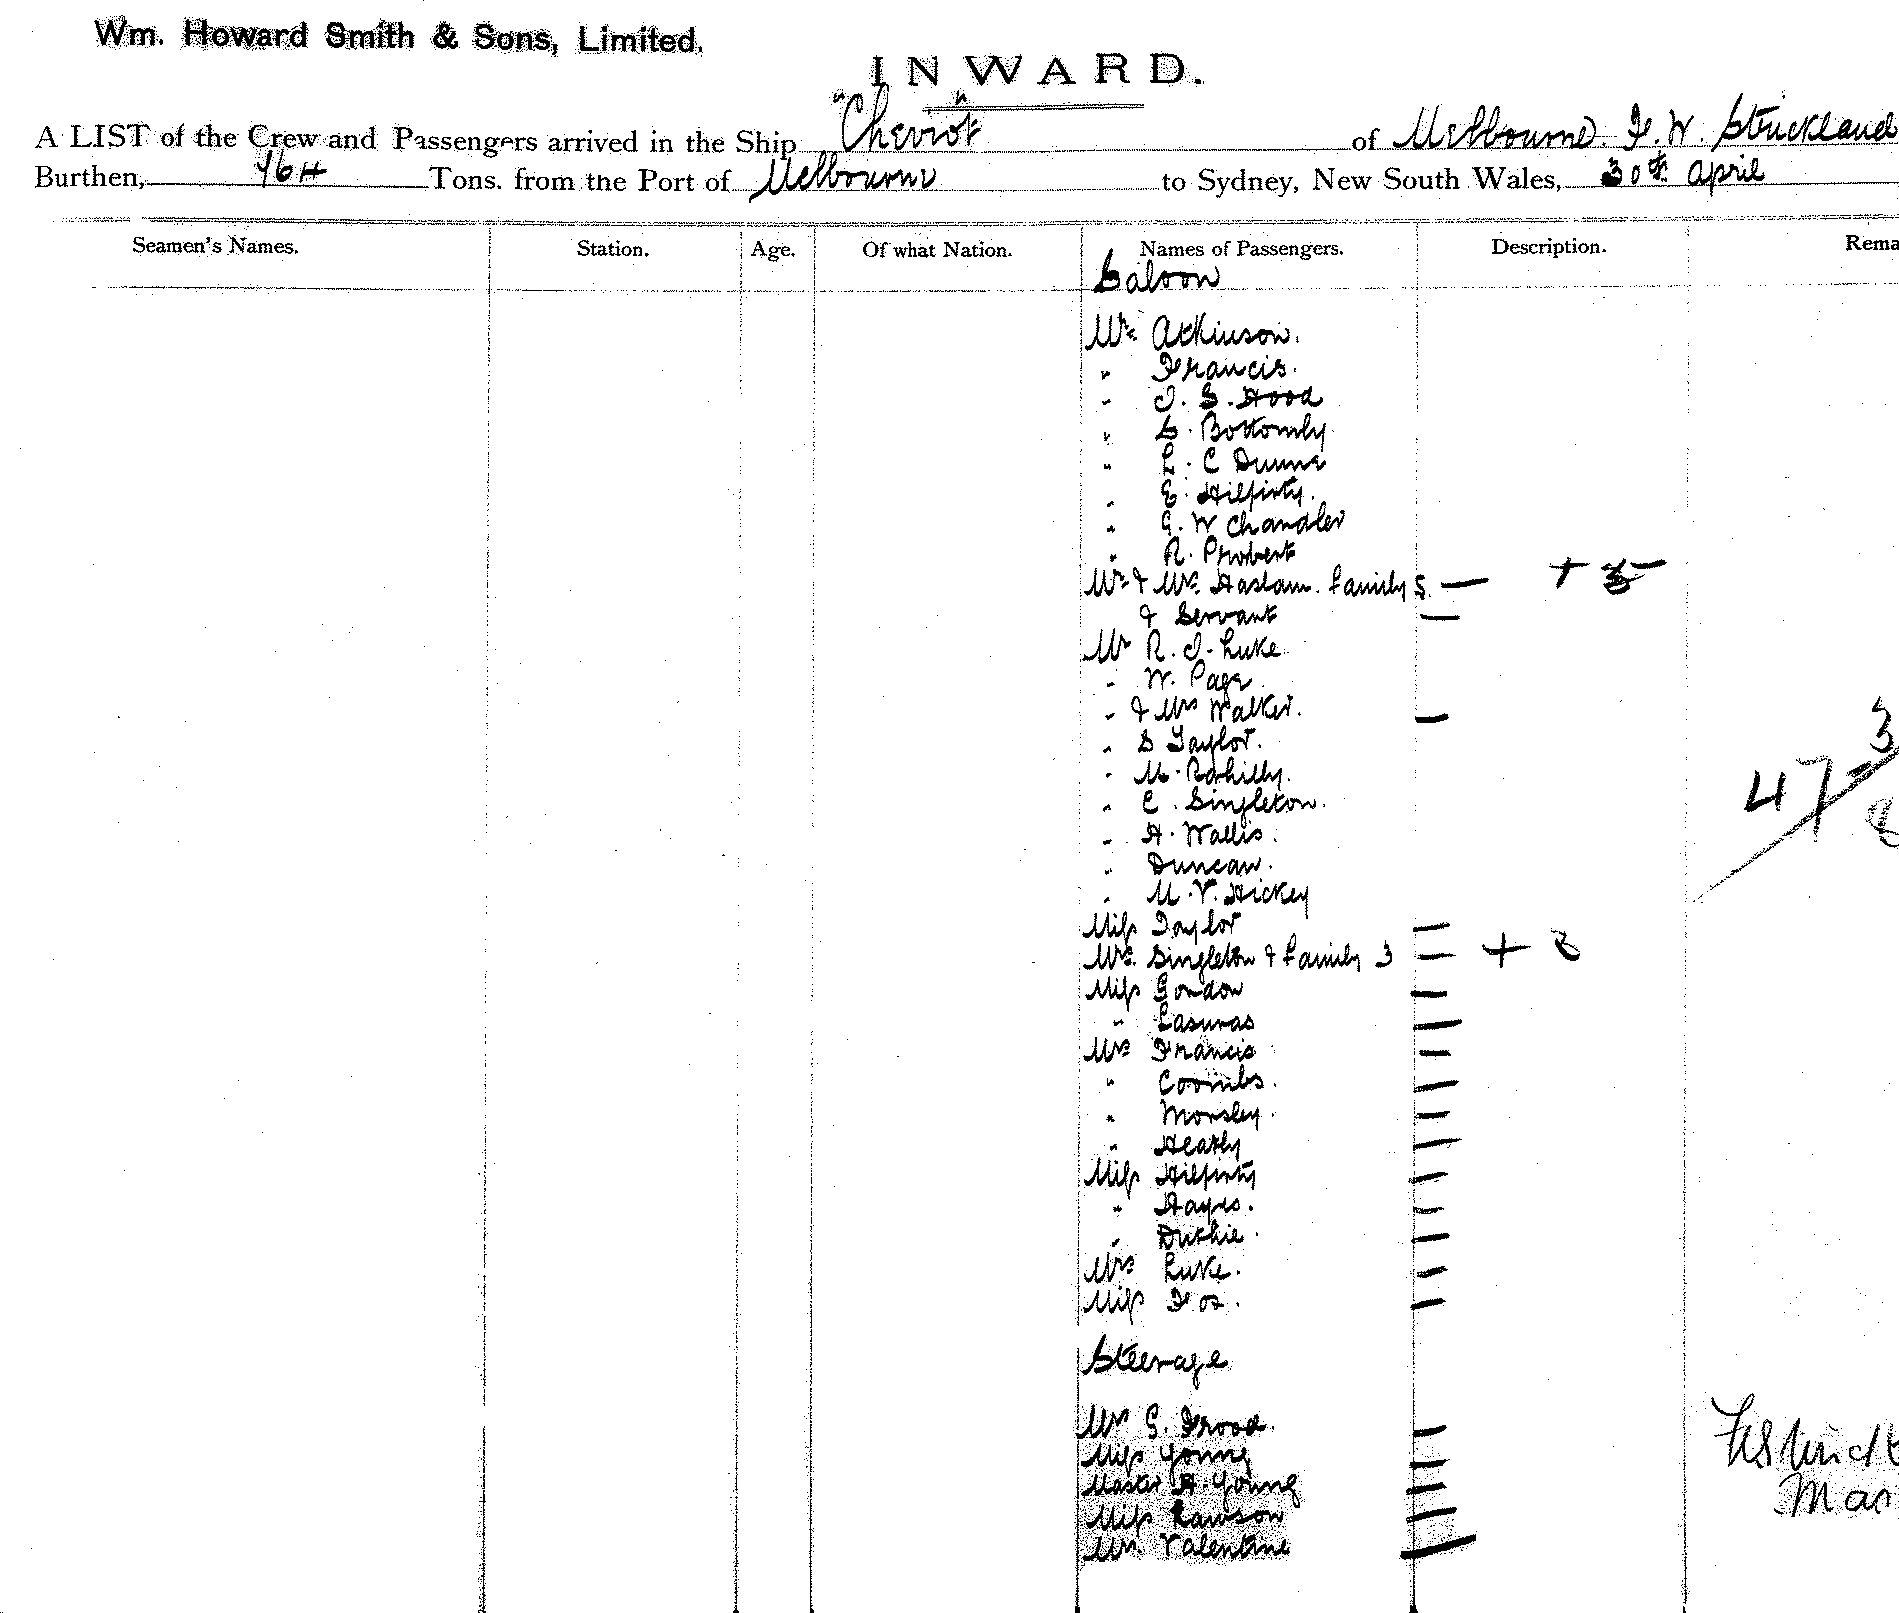 Wm. Howard Smith & Sons, Limited.
INWARD.
A LIST of the Crew and Passengers arrived in the Ship "Cheviot" of Melbourne. F. W. Strickland
Burthen, 764 Tons. from the Port of Melbourne to Sydney, New South Wales, 30th April
Seamen's Names. Station. Age. Of what Nation. Names of Passengers. Description. Rema
Saloon
Mr. Atkinson.
" Francis.
" J. S. Hood
" S. Bottomly
" L. C Dunne
" E. Hilfirty.
" G. W Chandler
" R. Probert
Mr & Mrs. Haslam. Family 5. — + 3 —
& Servant —
Mr R. J. Luke
" W. Page
" & Mrs Walker. —
" S Taylor.
" M. Rahilly.
" C. Singleton.
" H. Wallis.
" Duncan.
" M. V. Hickey
3
47
8
Miss Taylor —
Mrs. Singleton & Family 3 — + 3
Miss Gordon —
" —
Mrs Francis —
" Coombs. —
" Morsley. —
" Heathy —
Miss Hilfirty —
" Hayes. —
" Duthie. —
Mrs Luke. —
Miss Fox. —
Steerage
Mrs G. Frood. —
Miss Young —
Master H. Young —
Miss Lawson —
Mrs. Valentine —
Mas